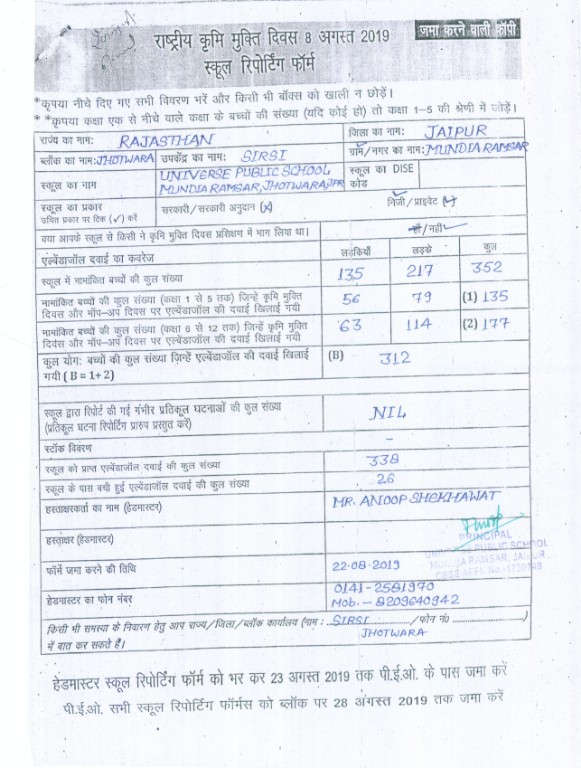 राष्ट्रीय कृमि मुक्ति दिवस 8 अगस्त 2019
जमा करने वाली कॉपी
स्कूल रिपोर्टिंग फॉर्म
*कृपया नीचे दिए गए सभी विवरण भरें और किसी भी बॉक्स को खाली न छोड़ें।
* *कृपया कक्षा एक से नीचे वाले कक्षा के बच्चों की संख्या (यदि कोई हो) तो कक्षा 1-5 की श्रेणी में जोड़ें।
राज्य का नाम: RAJASTHAN जिला का नाम: JAIPUR
ब्लॉक का नाम: JHOTWARA उपकेंद्र का नाम: SIRSI ग्राम/नगर का नाम: MUNDIA RAMSAR
स्कूल का नाम UNIVERSE PUBLIC SCHOOL
MUNDIA RAMSAR, JHOTWARA, JPR
स्कूल का DISE
कोड
स्कूल का प्रकार
उचित प्रकार पर टिक (✓) करें
सरकारी/सरकारी अनुदान (x) निजी/प्राइवेट (✓)
क्या आपके स्कूल से किसी ने कृमि मुक्ति दिवस प्रशिक्षण में भाग लिया था। हाँ/नहीं
एल्बेंडाजॉल दवाई का कवरेज लड़कियाँ लड़के कुल
स्कूल में नामांकित बच्चों की कुल संख्या 135 217 352
नामांकित बच्चों की कुल संख्या (कक्षा 1 से 5 तक) जिन्हें कृमि मुक्ति
दिवस और मॉप-अप दिवस पर एल्बेंडाजॉल की दवाई खिलाई गयी
56 79 (1) 135
नामांकित बच्चों की कुल संख्या (कक्षा 6 से 12 तक) जिन्हें कृमि मुक्ति
दिवस और मॉप-अप दिवस पर एल्बेंडाजॉल की दवाई खिलाई गयी
63 114 (2) 177
कुल योग: बच्चों की कुल संख्या जिन्हें एल्बेंडाजॉल की दवाई खिलाई
गयी ( B = 1+ 2)
(B) 312
स्कूल द्वारा रिपोर्ट की गई गंभीर प्रतिकूल घटनाओं की कुल संख्या
(प्रतिकूल घटना रिपोर्टिंग प्रारुप प्रस्तुत करें)
NIL
स्टॉक विवरण -
स्कूल को प्राप्त एल्बेंडाजॉल दवाई की कुल संख्या 338
स्कूल के पास बची हुई एल्बेंडाजॉल दवाई की कुल संख्या 26
हस्ताक्षरकर्ता का नाम (हेडमास्टर) MR. ANOOP SHEKHAWAT
हस्ताक्षर (हेडमास्टर)
Anoop
PRINCIPAL
UNIVERSE PUBLIC SCHOOL
MUNDIA RAMSAR, JAIPUR
CBSE AFFI. No.-
फॉर्म जमा करने की तिथि 22-08-2019
हेडमास्टर का फोन नंबर 0141-2581970
Mob. - 8209640942
किसी भी समस्या के निवारण हेतु आप राज्य/जिला/ब्लॉक कार्यालय (नाम : SIRSI /फोन नं० )
JHOTWARA
में बात कर सकते हैं।
हेडमास्टर स्कूल रिपोर्टिंग फॉर्म को भर कर 23 अगस्त 2019 तक पी.ई.ओ. के पास जमा करें
पी.ई.ओ. सभी स्कूल रिपोर्टिंग फॉर्मस को ब्लॉक पर 28 अगस्त 2019 तक जमा करें